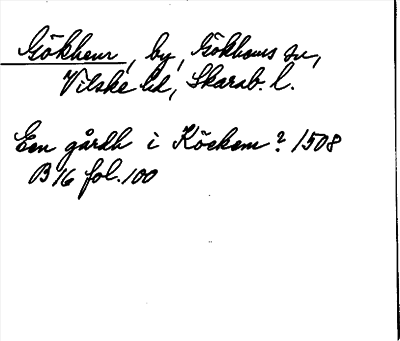 Gökhem, by, Gökhems sn,
Vilske hd, Skarab. l.
Een gårdh i Köckem? 1508
B 16 fol. 100